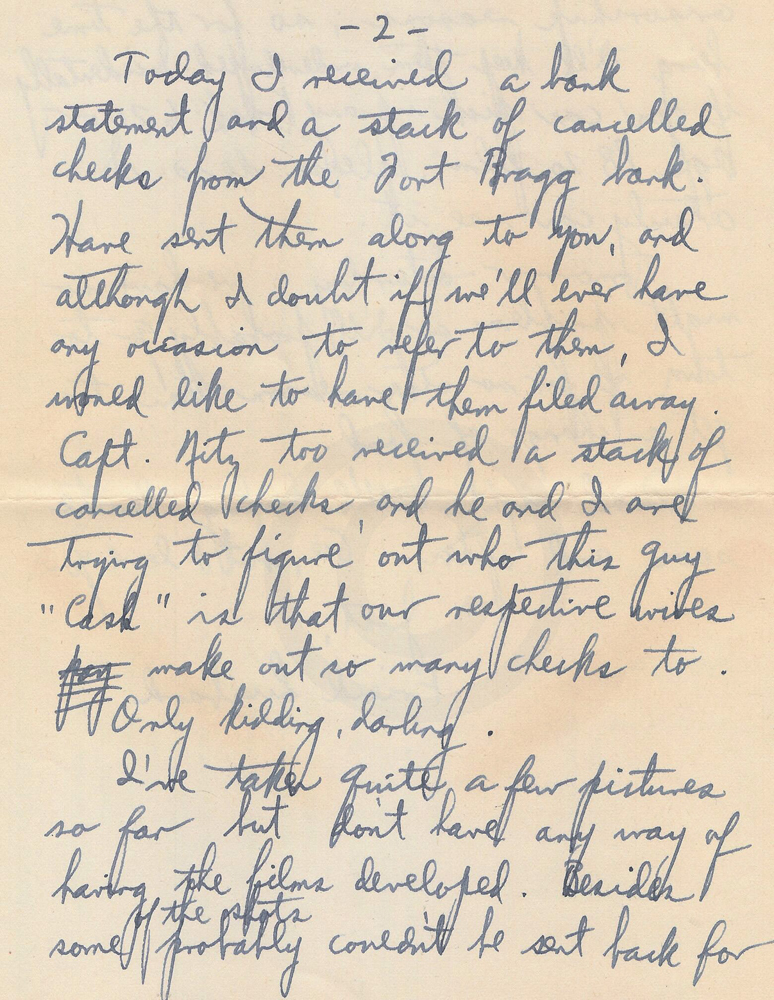 - 2 -
Today I received a bank
statement and a stack of cancelled
checks from the Fort Bragg bank.
Have sent them along to you, and
although I doubt if we'll ever have
any occasion to refer to them, I
would like to have them filed away.
Capt. too received a stack of
cancelled checks, and he and I are
trying to figure out who this guy
"Cash" is that our respective wives
make out so many checks to.
Only kidding, darling.
I've taken quite a few pictures
so far but don't have any way of
having the films developed. Besides
of the shots
some probably couldn't be sent back for